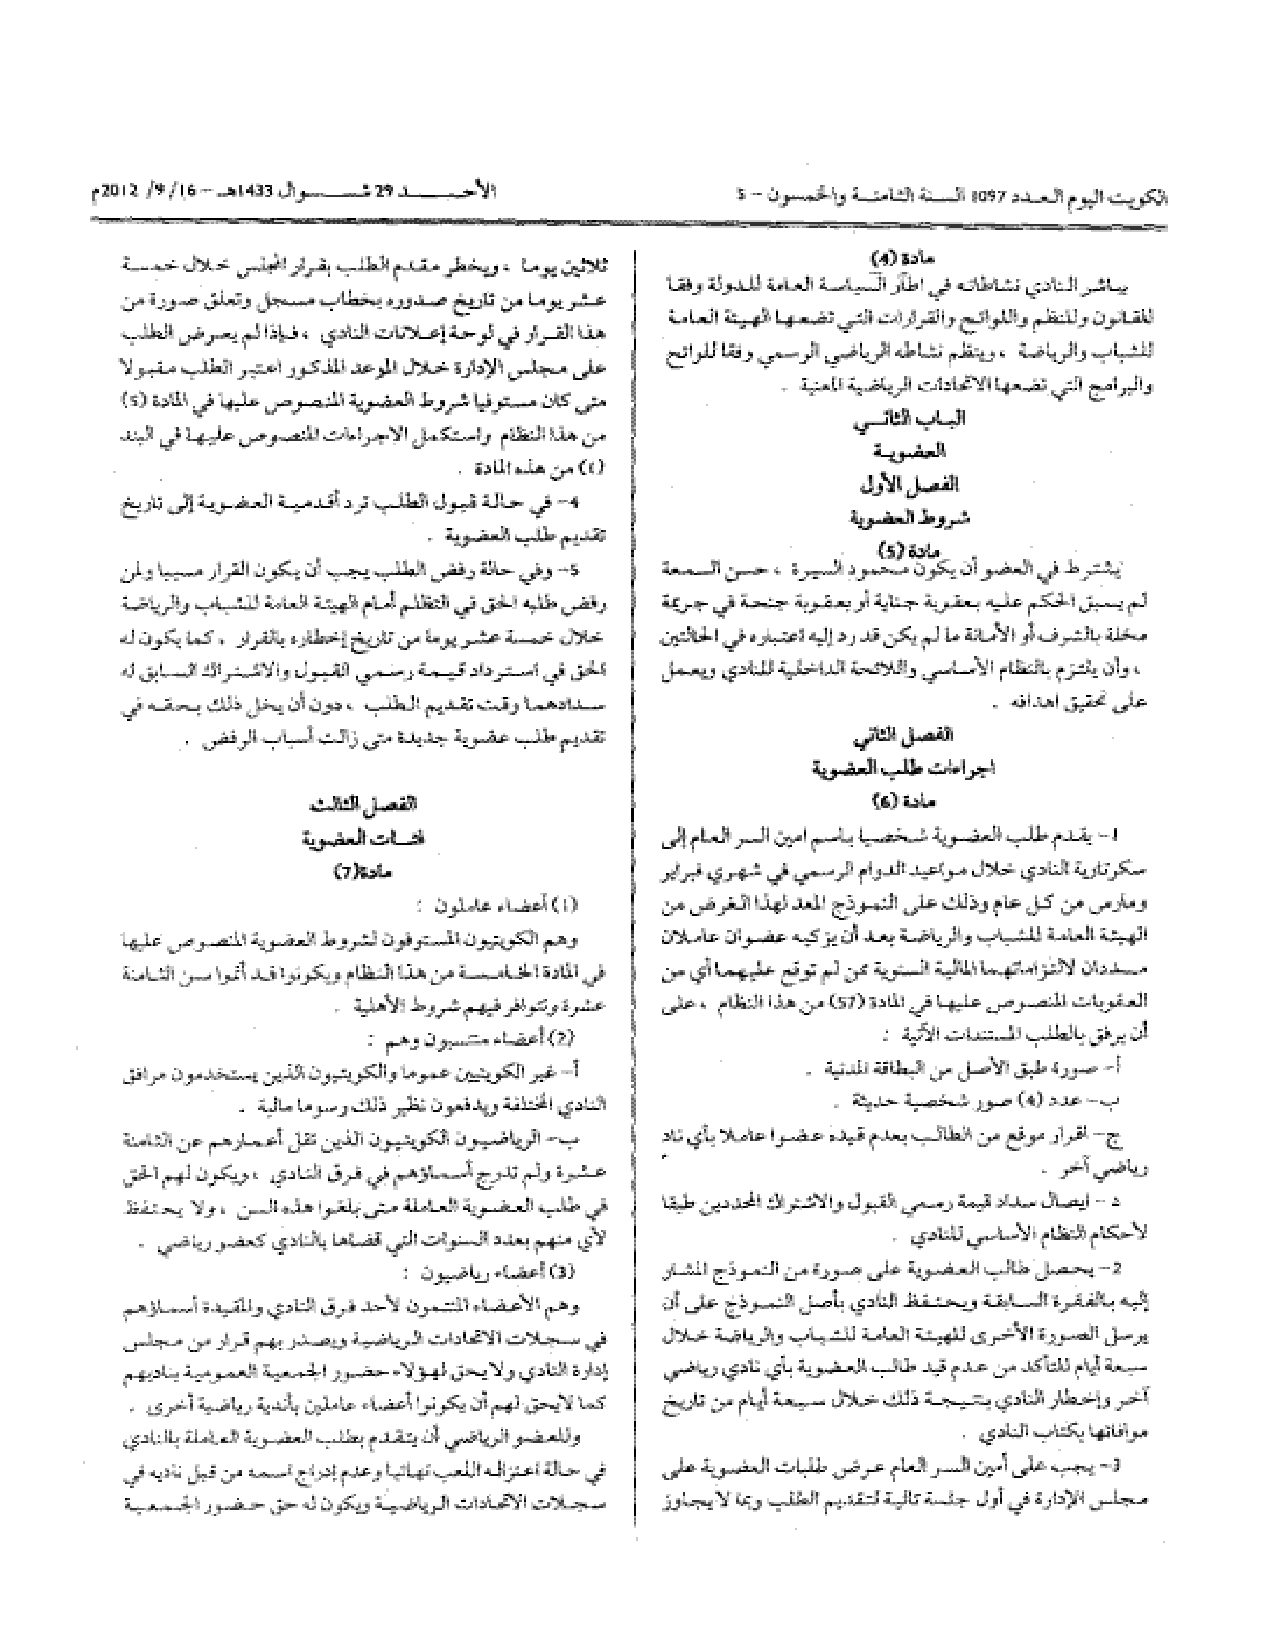 الكويت اليوم العدد 1097 السنة الثامنة والخمسون – 5
الأحد 29 شوال 1433هـ – 16/ 9/ 2012م
مادة (4)
يباشر النادي نشاطاته في اطار السياسة العامة للدولة وفقا
للقانون وللنظم واللوائح والقرارات التي تضعها الهيئة العامة
للشباب والرياضة ، وينظم نشاطه الرياضي الرسمي وفقا للوائح
والبرامج التي تضعها الاتحادات الرياضية المعنية .
الباب الثاني
العضوية
الفصل الأول
شروط العضوية
مادة (5)
يشترط في العضو أن يكون محمود السيرة ، حسن السمعة
لم يسبق الحكم عليه بعقوبة جناية أو بعقوبة جنحة في جريمة
مخلة بالشرف أو الأمانة ما لم يكن قد رد إليه اعتباره في الحالتين
، وأن يلتزم بالنظام الأساسي واللائحة الداخلية للنادي ويعمل
على تحقيق اهدافه .
الفصل الثاني
اجراءات طلب العضوية
مادة (6)
1– يقدم طلب العضوية شخصيا باسم امين السر العام إلى
سكرتارية النادي خلال مواعيد الدوام الرسمي في شهري فبراير
ومارس من كل عام وذلك على النموذج المعد لهذا الغرض من
الهيئة العامة للشباب والرياضة بعد أن يزكيه عضوان عاملان
مسددان لالتزاماتهما المالية السنوية ممن لم توقع عليهما أي من
العقوبات المنصوص عليها في المادة (57) من هذا النظام ، على
أن يرفق بالطلب المستندات الآتية :
أ– صورة طبق الأصل من البطاقة المدنية .
ب– عدد (4) صور شخصية حديثة .
ج– اقرار موقع من الطالب بعدم قيده عضوا عاملا بأي ناد
رياضي آخر .
د – ايصال سداد قيمة رسمي القبول والاشتراك المحددين طبقا
لأحكام النظام الأساسي للنادي .
2– يحصل طالب العضوية على صورة من النموذج المشار
إليه بالفقرة السابقة ويحتفظ النادي بأصل النموذج على أن
يرسل الصورة الأخرى للهيئة العامة للشباب والرياضة خلال
سبعة أيام للتأكد من عدم قيد طالب العضوية بأي نادي رياضي
آخر وإخطار النادي بنتيجة ذلك خلال سبعة أيام من تاريخ
موافاتها بكتاب النادي .
3– يجب على أمين السر العام عرض طلبات العضوية على
مجلس الإدارة في أول جلسة تالية لتقديم الطلب وبما لا يجاوز
ثلاثين يوما ، ويخطر مقدم الطلب بقرار المجلس خلال خمسة
عشر يوما من تاريخ صدوره بخطاب مسجل وتعلق صورة من
هذا القرار في لوحة إعلانات النادي ، فإذا لم يعرض الطلب
على مجلس الإدارة خلال الموعد المذكور اعتبر الطلب مقبولا
متى كان مستوفيا شروط العضوية المنصوص عليها في المادة (5)
من هذا النظام واستكمل الاجراءات المنصوص عليها في البند
من هذه المادة .
4– في حالة قبول الطلب ترد أقدمية العضوية إلى تاريخ
تقديم طلب العضوية .
5– وفي حالة رفض الطلب يجب أن يكون القرار مسببا ولمن
رفض طلبه الحق في التظلم أمام الهيئة العامة للشباب والرياضة
خلال خمسة عشر يوما من تاريخ إخطاره بالقرار . كما يكون له
الحق في استرداد قيمة رسمي القبول والاشتراك السابق له
سدادهما وقت تقديم الطلب ، دون أن يخل ذلك بحقه في
تقديم طلب عضوية جديدة متى زالت أسباب الرفض .
الفصل الثالث
فئات العضوية
مادة(7)
(1) أعضاء عاملون :
وهم الكويتيون المستوفون لشروط العضوية المنصوص عليها
في المادة الخامسة من هذا النظام ويكونوا قد أتموا سن الثامنة
عشرة وتتوافر فيهم شروط الأهلية .
(2) أعضاء منتسبون وهم :
أ– غير الكويتيين عموما والكويتيون الذين يستخدمون مرافق
النادي المختلفة ويدفعون نظير ذلك رسوما مالية .
ب– الرياضيون الكويتيون الذين تقل أعمارهم عن الثامنة
عشرة ولم تدرج أسماؤهم في فرق النادي ، ويكون لهم الحق
في طلب العضوية العاملة متى بلغوا هذه السن ، ولا يحتفظ
لأي منهم بعدد السنوات التي قضاها بالنادي كعضو رياضي .
(3) أعضاء رياضيون :
وهم الأعضاء المنتمون لأحد فرق النادي والمقيدة أسماؤهم
في سجلات الاتحادات الرياضية ويصدر بهم قرار من مجلس
إدارة النادي ولا يحق لهؤلاء حضور الجمعية العمومية بناديهم
كما لايحق لهم أن يكونوا أعضاء عاملين بأندية رياضية أخرى .
وللعضو الرياضي أن يتقدم بطلب العضوية العاملة بالنادي
في حالة اعتزاله اللعب نهائيا وعدم إدراج اسمه من قبل ناديه في
سجلات الاتحادات الرياضية ويكون له حق حضور الجمعية